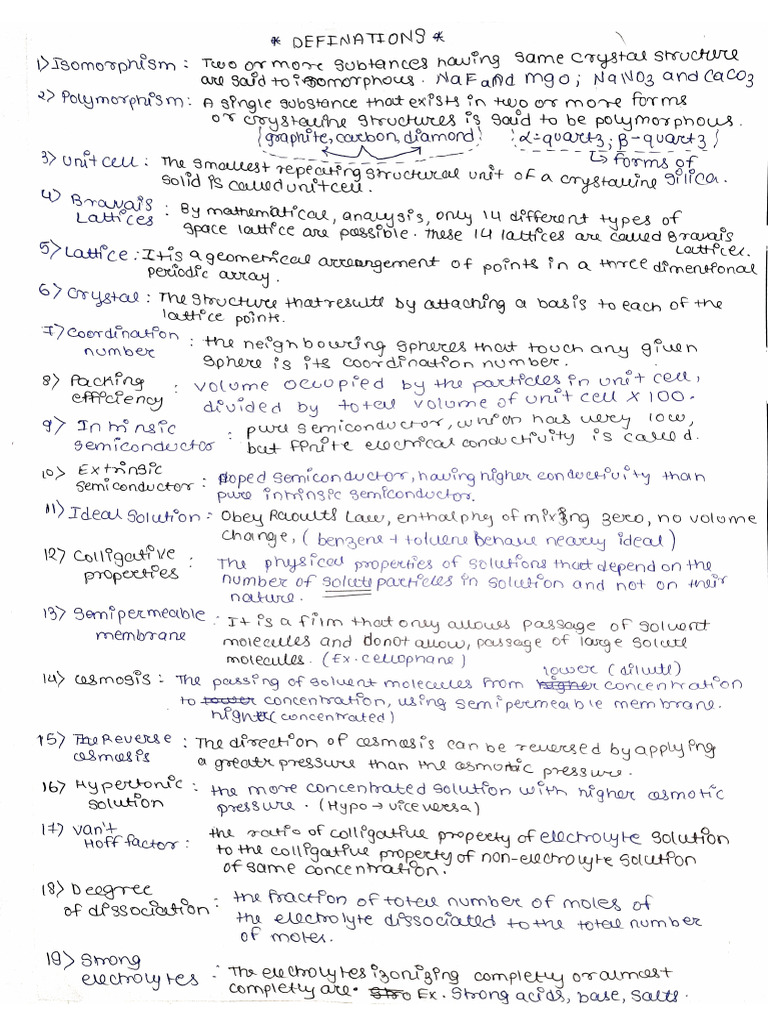 * DEFINATIONS *
1) Isomorphism : Two or more subtances having same crystal structure
are said to isomorphous. NaF and mgo; NaNO3 and CaCO3
2) Polymorphism : A single substance that exists in two or more forms
or crystalline structures is said to be polymorphous.
{graphite, carbon, diamond} {α=quartz; β-quartz}
↳ forms of
3) Unit cell : The smallest repeating structural unit of a crystalline silica.
solid is called unit cell.
4) Bravais : By mathematical, analysis, only 14 different types of
Lattices space lattice are possible. these 14 lattices are called Bravais
lattices.
5) Lattice : It is a geometrical arrangement of points in a three dimentional
periodic array.
6) Crystal : The structure that results by attaching a basis to each of the
lattice points.
7) Coordination : the neighbouring spheres that touch any given
number sphere is its coordination number.
8) Packing : volume occupied by the particles in unit cell,
efficiency divided by total volume of unit cell x 100.
9) Intrinsic : pure semiconductor, which has very low,
semiconductor but finite electrical conductivity is called.
10) Extrinsic
semiconductor : Doped semiconductor, having higher conductivity than
pure intrinsic semiconductor.
11) Ideal solution : Obey Raoults Law, enthalphy of mixing zero, no volume
change, (benzene + toluene behave nearly ideal)
12) Colligative : The physical properties of solutions that depend on the
properties number of solute particles in solution and not on their
nature.
13) Semipermeable : It is a film that only allows passage of solvent
membrane molecules and donot allow, passage of large solute
molecules. (Ex. cellophane)
lower (dilute)
14) Osmosis : The passing of solvent molecules from higher concentration
to lower concentration, using semipermeable membrane.
higher (concentrated)
15) The Reverse : The direction of osmosis can be reversed by applying
osmosis a greatr pressure than the osmotic pressure.
16) Hypertonic : the more concentrated solution with higher osmotic
solution pressure. (Hypo → vice versa)
17) Van't the ratio of colligative property of electrolyte solution
Hoff factor : to the colligative property of non-electrolyte solution
of same concentration.
18) Deegree the fraction of total number of moles of
of dissociation : the electrolyte dissociated to the total number
of moles.
19) Strong : The electrolytes izonizing completly or almost
electrolytes completly are. Stro Ex. Strong acids, base, salts.